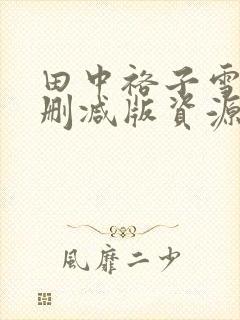 田中裕子雪
删减版資源
風靡二少